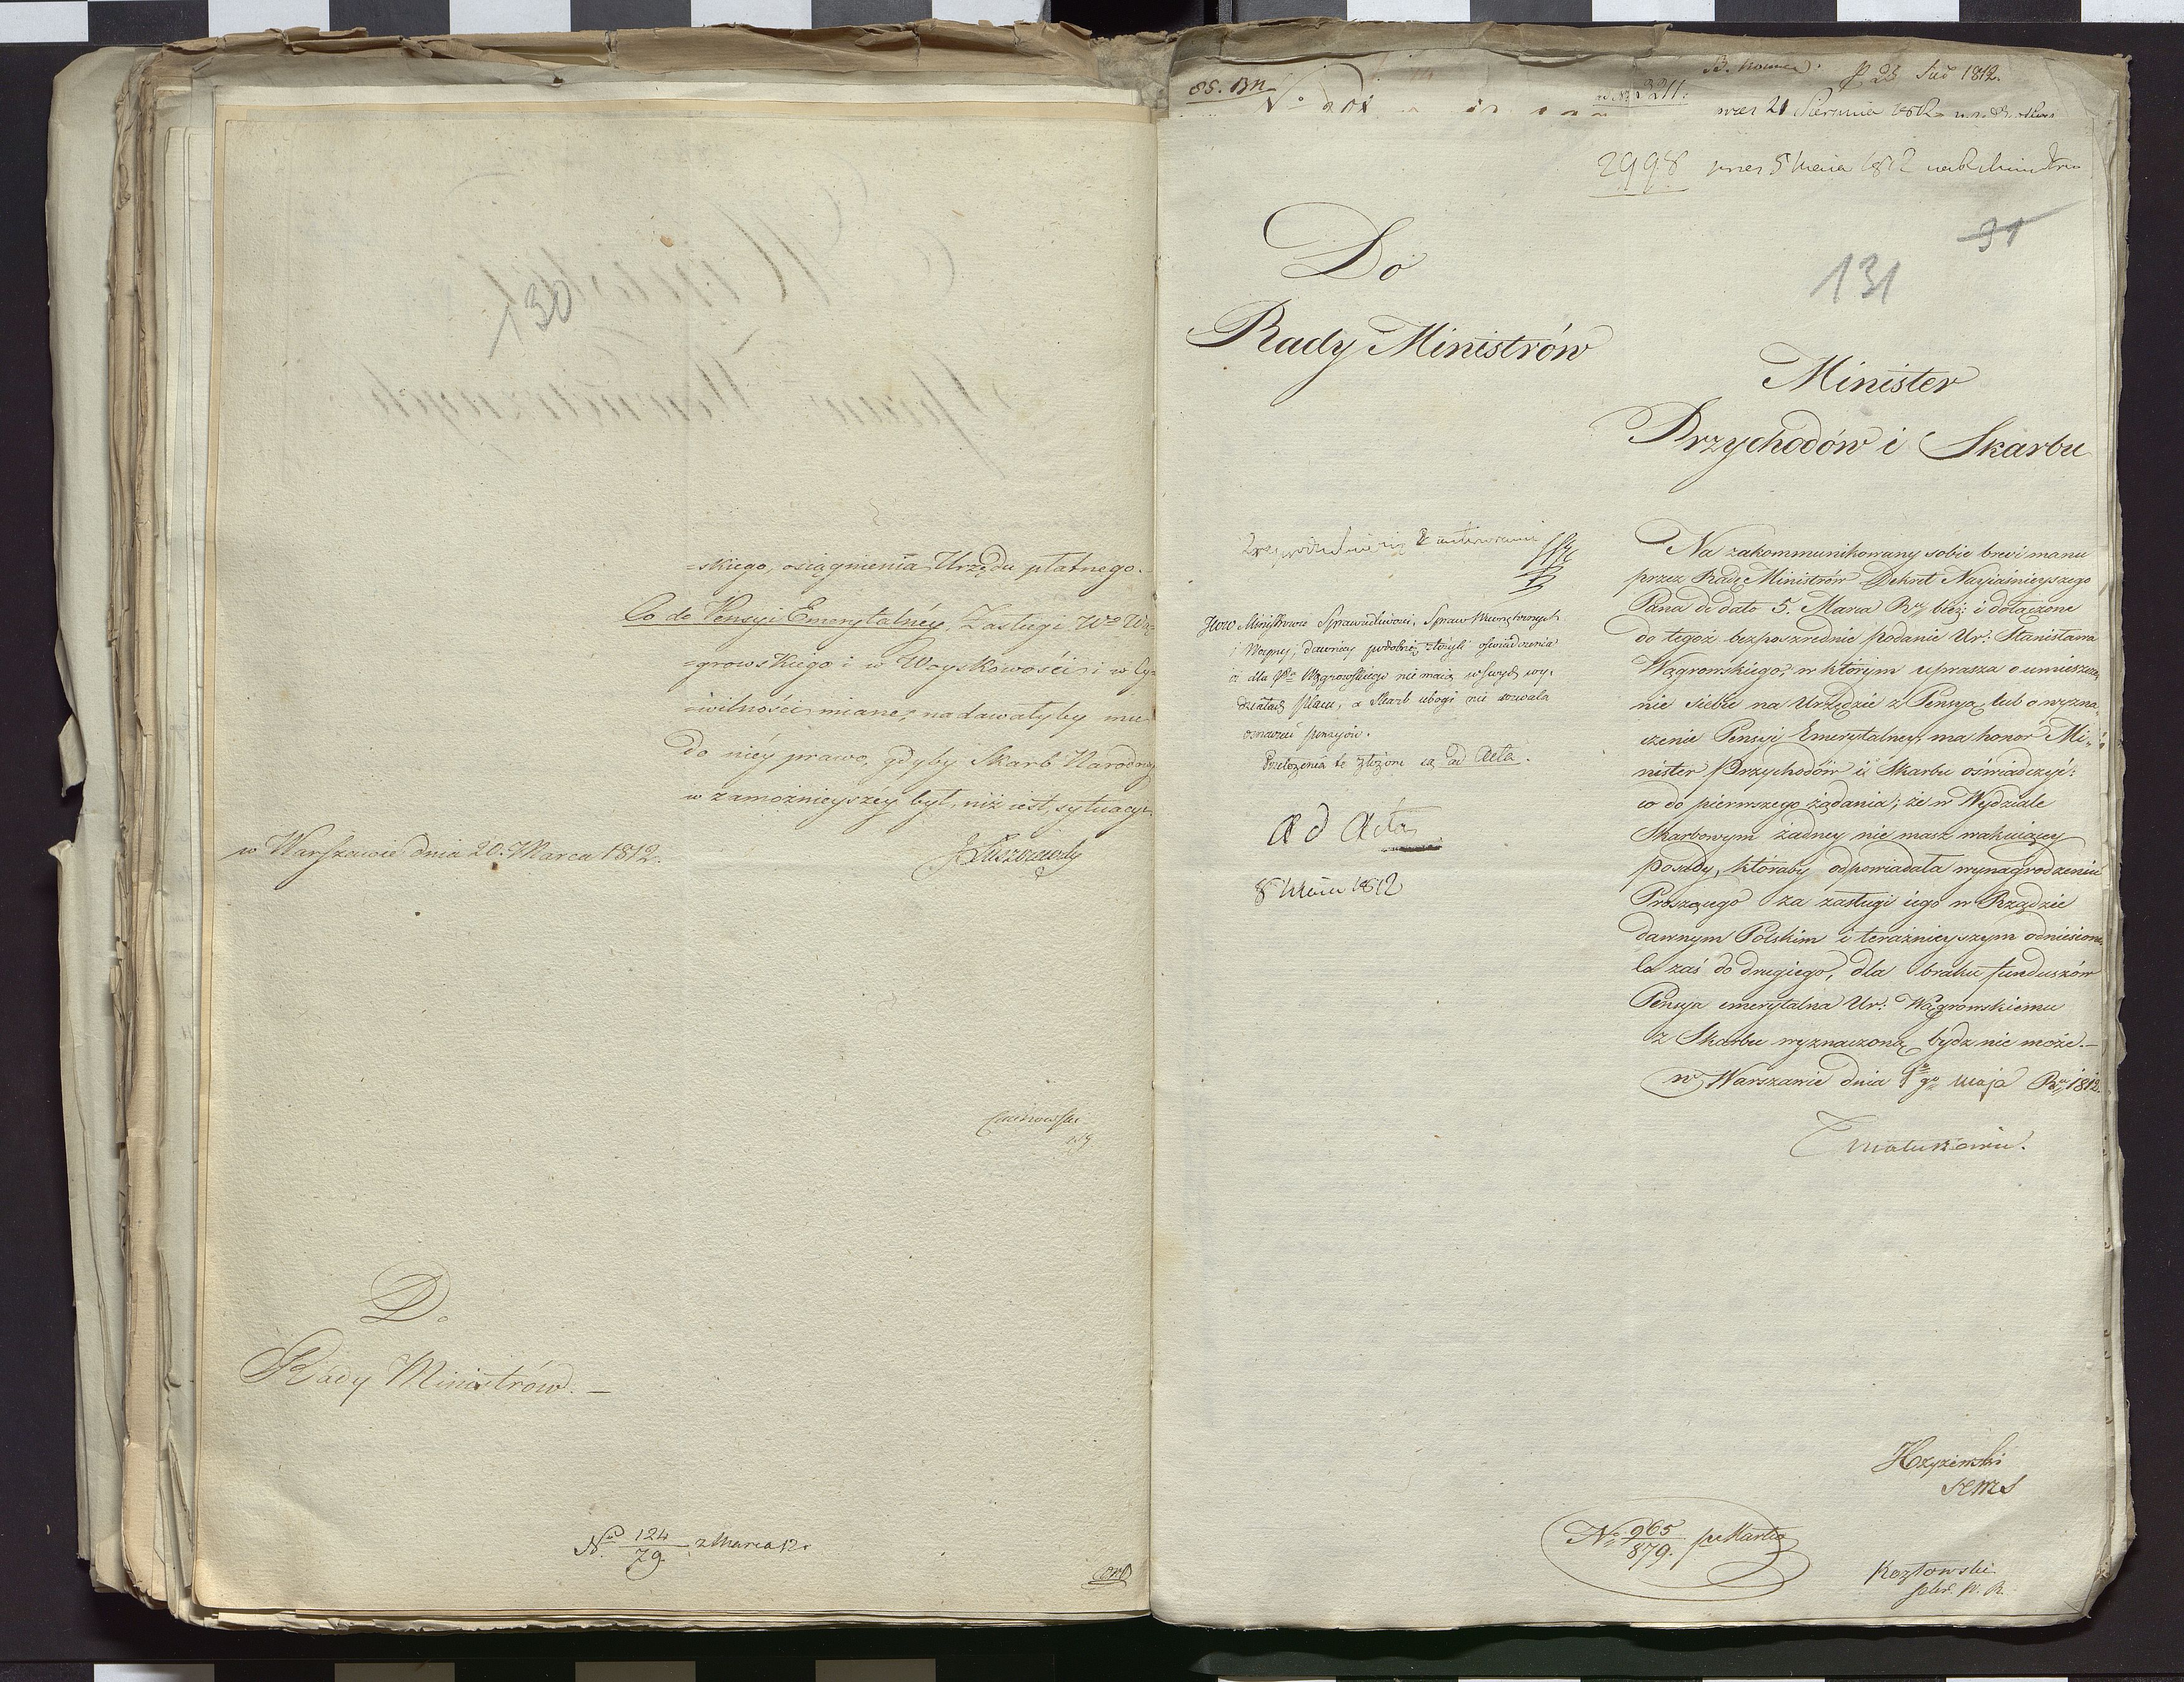 =skiego, osiągnienia Urzędu płatnego.
Co do Pensyi Emerytalnéy, Zasługi Wo Wą=
=growskiego i w Woyskowości i w Cy=
=wilności miane, nadawałyby mu
do niéy prawo, gdyby Skarb Narodowy
w zamożnieyszéy był, niż iest, sytuacyi.
w Warszawie dnia 20. Marca 1812.
130
Do
Rady Ministrów. –
No 124/79. z Marca 12.
3211.
21 Sierpnia 1812
2998 przes 5 Maia 1812
31
131
Do
Rady Ministrów
Minister
Przychodów i Skarbu
JWW Ministrowie Sprawiedliwości, Spraw Wewnętrznych
i Woyny, dawniey podobnież złożyli oświadczenia
iż dla Wo Wągrowskiego nie maią w swych wy-
działach placu, a Skarb ubogi nie dozwala
oznaczać pensyów.
Przełożenia te złożone są ad Acta.
Ad Acta
8 Maia 1812
Na zakommunikowany sobie brevi manu
przez Radę Ministrów Dekret Nayiaśnieyszego
Pana de dato 5. Marca Ru bież: i dołączone
do tegoż bezpośrednie podanie Ur: Stanisława
Wągrowskiego, w którym uprasza o umieszcze,,
nie siebie na Urzędzie z Pensyą, lub o wyzna,,
czenie Pensyi Emerytalney, ma honor Mi,,
nister Przychodów i Skarbu oświadczyć:
co do pierwszego żądania; że w Wydziale
Skarbowym żadney nie masz wakuiącey
posady, któraby odpowiadała wynagrodzeniu
Proszącego za zasługi iego w Rządzie
dawnym Polskim i teraźnieyszym odniesione
Co zaś do drugiego, dla braku funduszów
Pensya emerytalna Ur: Wągrowskiemu
z Skarbu wyznaczoną bydz nie może. –
w Warszawie dnia 1go Maja Ru 1812.
Matuszewic.
No 965/879.
Kozłowski